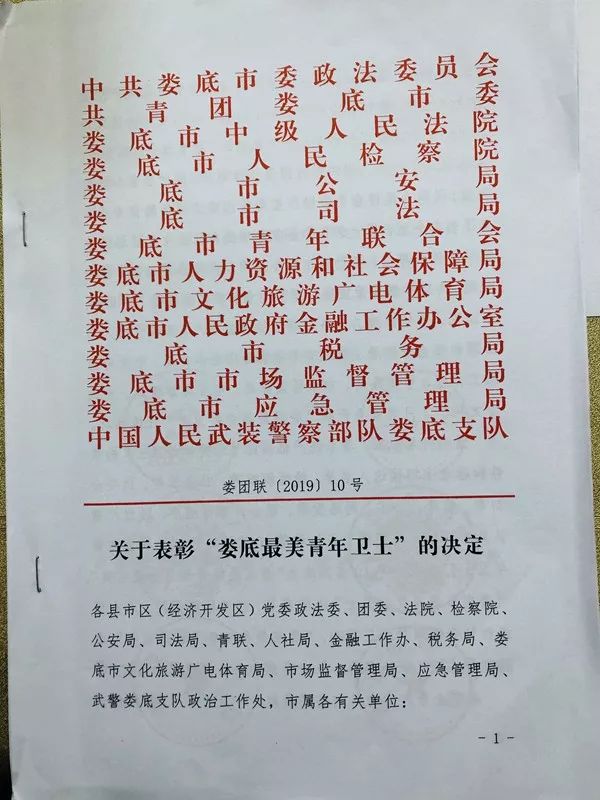 中共娄底市委政法委员会
共青团娄底市委
娄底市中级人民法院
娄底市人民检察院
娄底市公安局
娄底市司法局
娄底市青年联合会
娄底市人力资源和社会保障局
娄底市文化旅游广电体育局
娄底市人民政府金融工作办公室
娄底市税务局
娄底市市场监督管理局
娄底市应急管理局
中国人民武装警察部队娄底支队
娄团联〔2019〕10号
关于表彰“娄底最美青年卫士”的决定
各县市区（经济开发区）党委政法委、团委、法院、检察院、
公安局、司法局、青联、人社局、金融工作办、税务局、娄
底市文化旅游广电体育局、市场监督管理局、应急管理局、
武警娄底支队政治工作处，市属各有关单位：
- 1 -